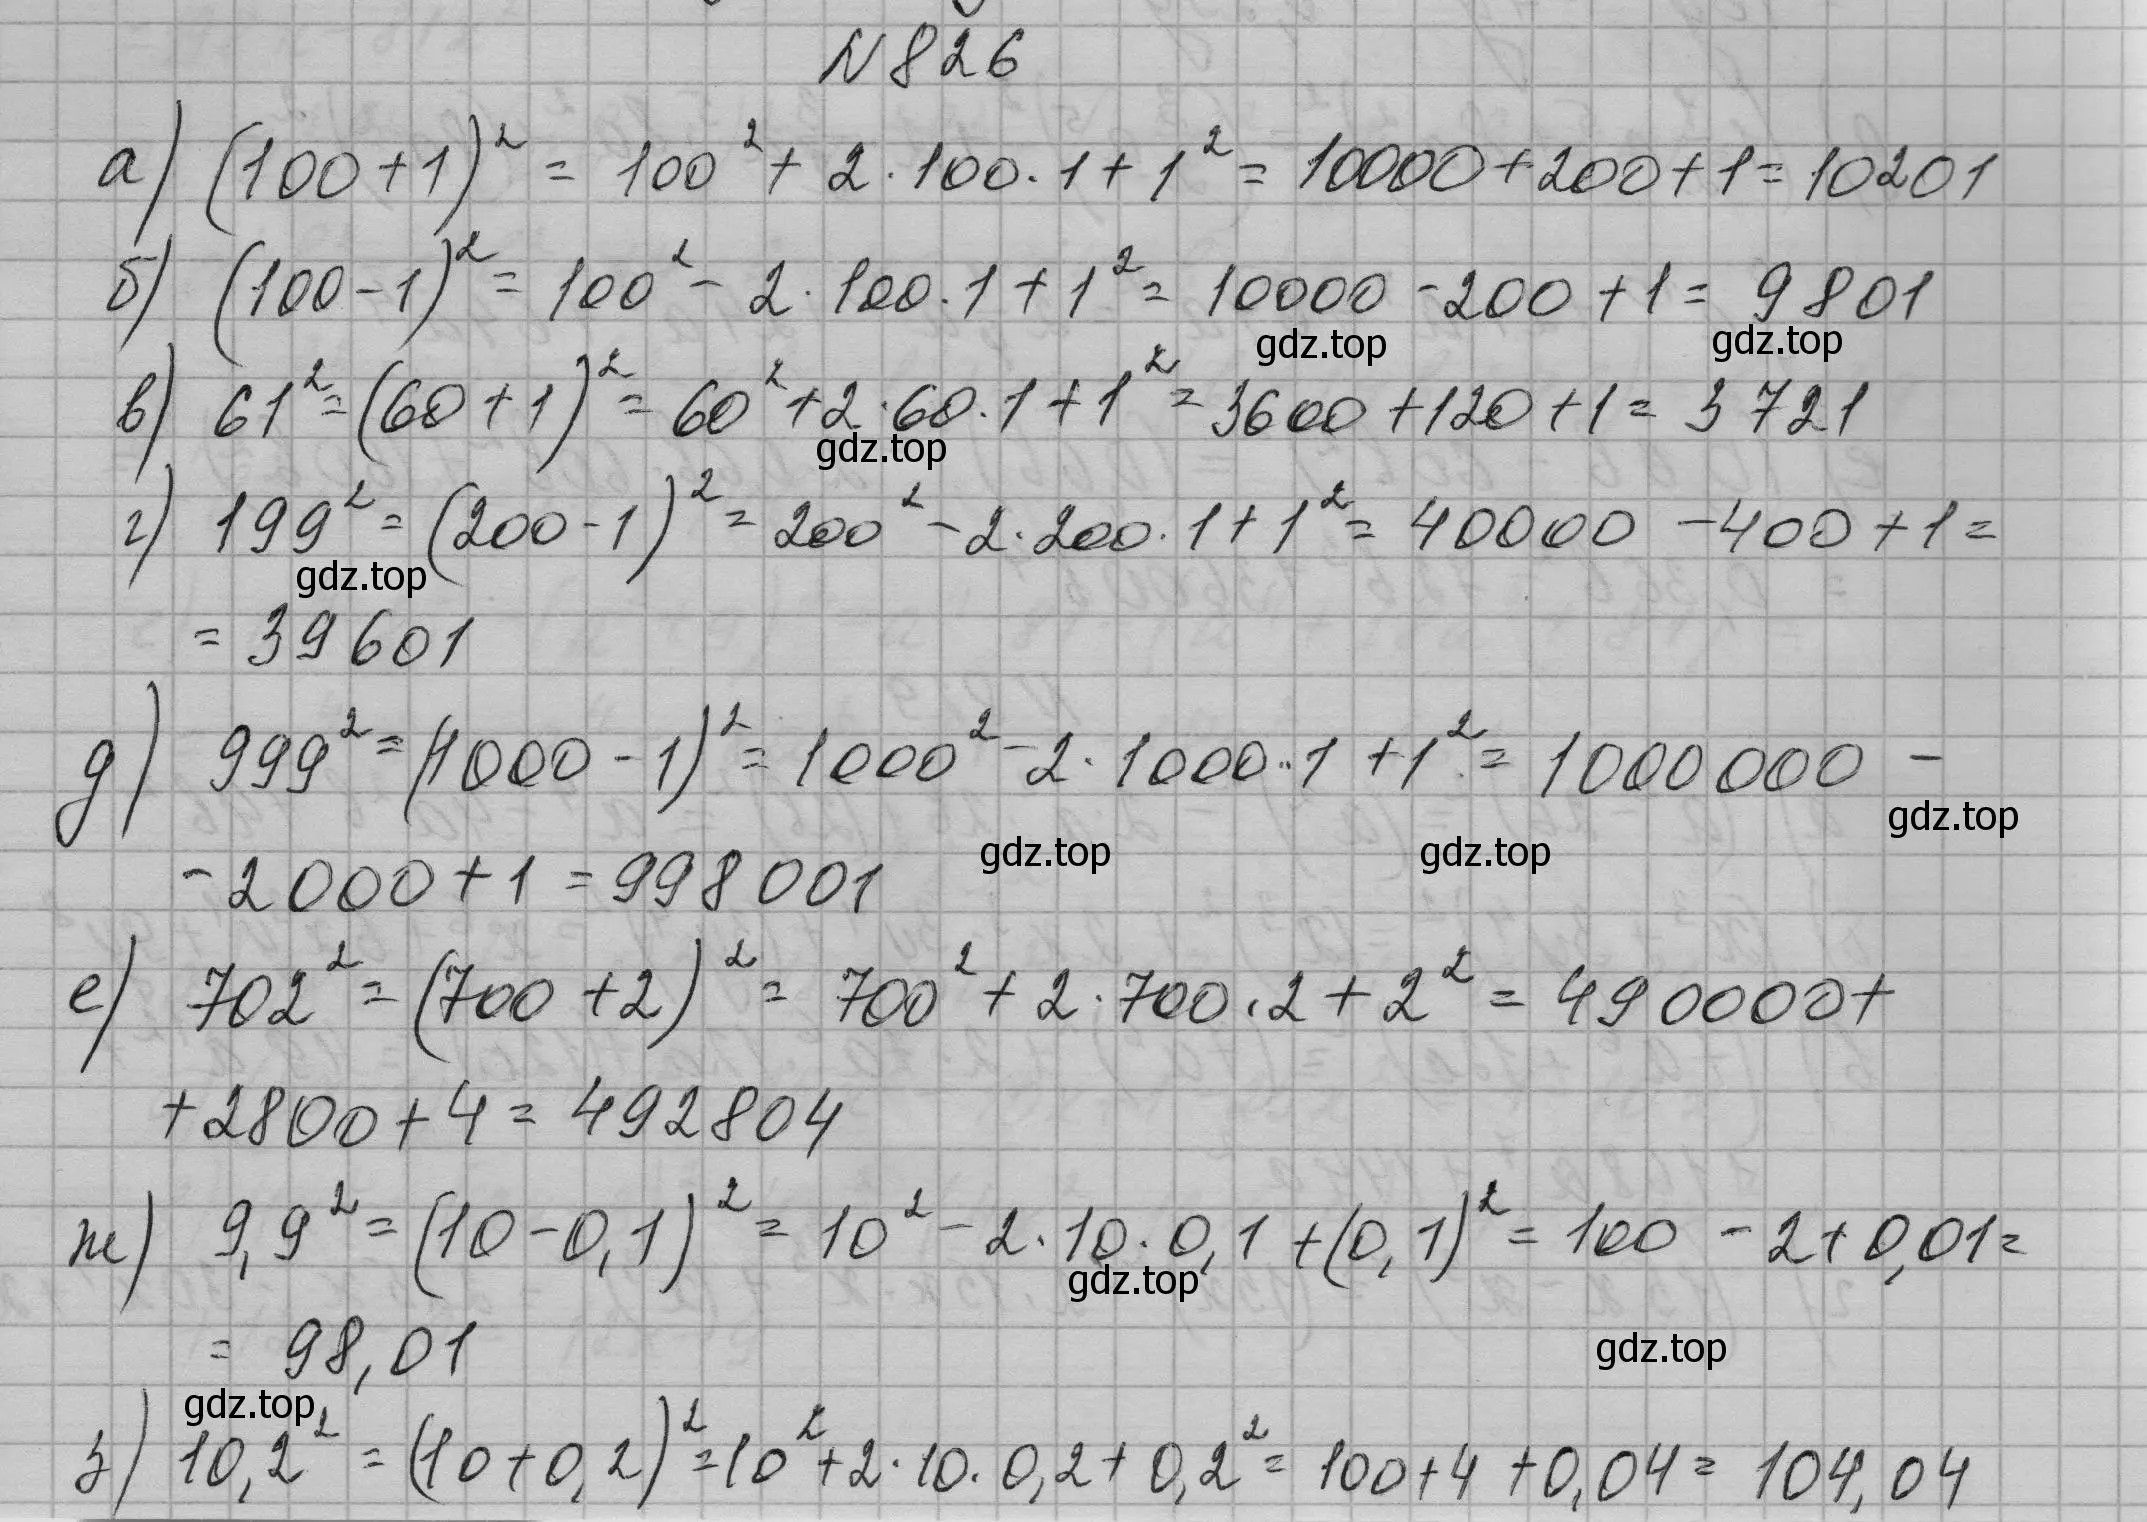 N 826
а) (100+1)² = 100² + 2·100·1+1² = 10000+200+1=10201
б) (100-1)² = 100² - 2·100·1+1² = 10000-200+1= 9801
gdz.top gdz.top
в) 61² = (60+1)² = 60²+2·60·1+1² = 3600+120+1= 3721
gdz.top
г) 199² = (200-1)² = 200² - 2·200·1+1² = 40000 - 400+1=
gdz.top
= 39601
д) 999² = (1000-1)² = 1000² - 2·1000·1+1² = 1000000 -
gdz.top
gdz.top gdz.top
-2000+1 = 998001
е) 702² = (700+2)² = 700² + 2·700·2+2² = 490000+
+2800+4= 492804
ж) 9,9² = (10-0,1)² = 10² - 2·10·0,1+(0,1)² = 100 - 2+0,01=
gdz.top
= 98,01
gdz.top
gdz.top
з) 10,2² = (10+0,2)² = 10²+2·10·0,2+0,2² = 100+4+0,04= 104,04